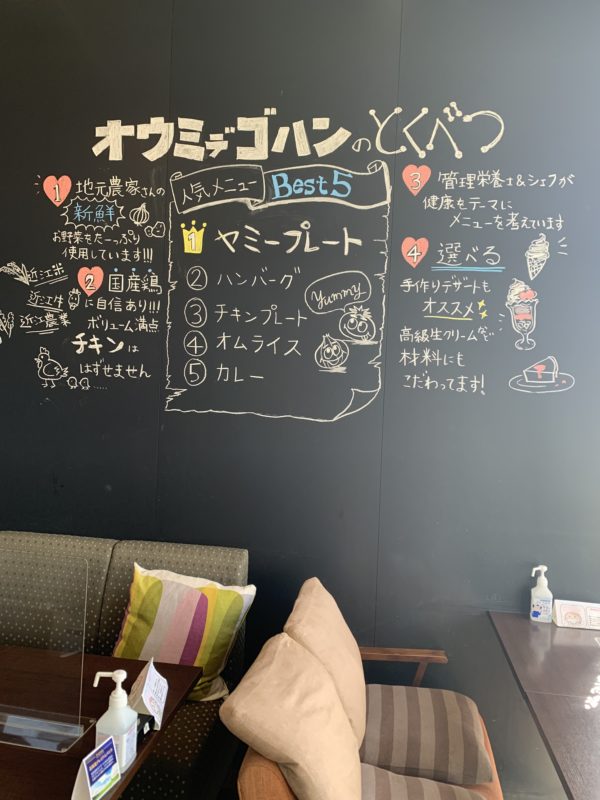 オウミデゴハンのとくべつ
1 地元農家さんの
新鮮
お野菜をたーっぷり
使用しています!!!
近江米
近江牛
近江農業
2 国産鶏
に自信あり!!!
ボリューム満点
チキンは
はずせません
人気メニュー Best5
1 ヤミープレート
② ハンバーグ
③ チキンプレート
④ オムライス
⑤ カレー
Yummy
3 管理栄養士&シェフが
健康をテーマに
メニューを考えています
4 選べる
手作りデザートも
オススメ
高級生クリームなど
材料にも
こだわってます!